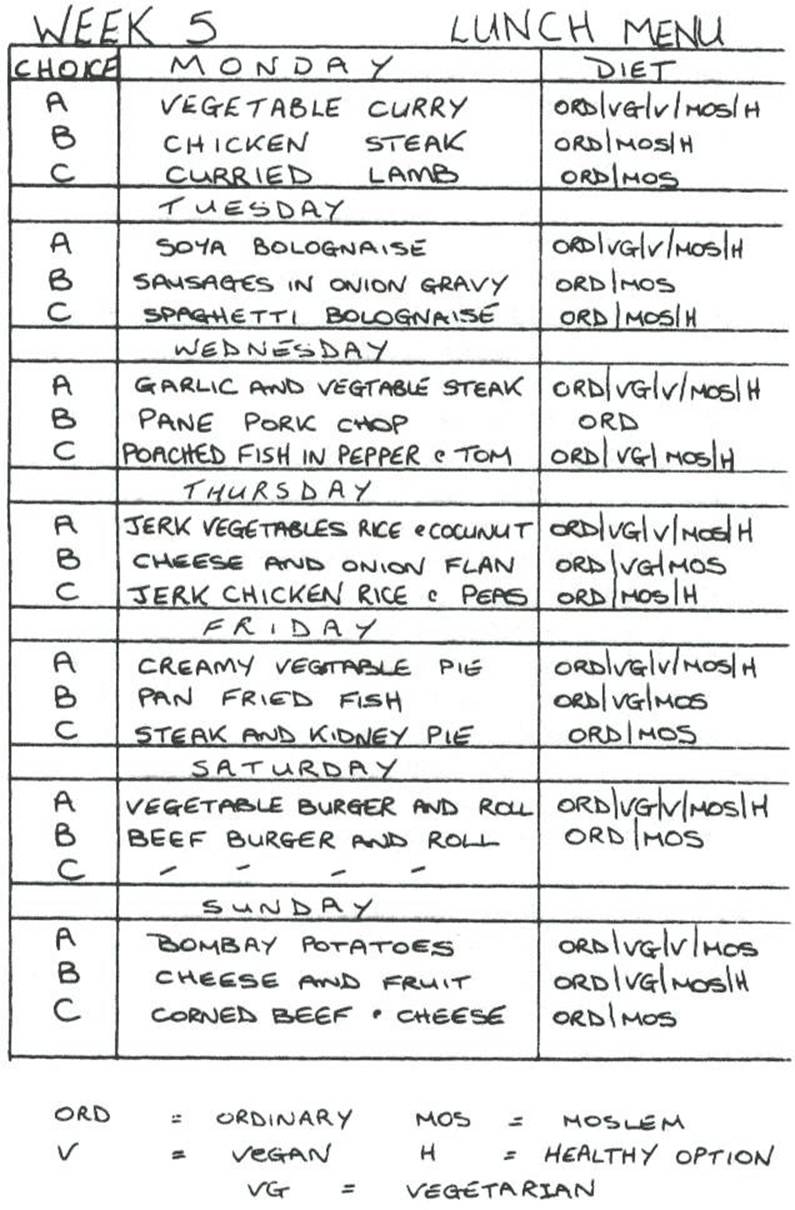 WEEK 5 LUNCH MENU
CHOICE MONDAY DIET
A VEGETABLE CURRY ORD|VG|V/MOS|H
B CHICKEN STEAK ORD|MOS|H
C CURRIED LAMB ORD|MOS
TUESDAY
A SOYA BOLOGNAISE ORD|VG|V/MOS|H
B SAUSAGES IN ONION GRAVY ORD|MOS
C SPAGHETTI BOLOGNAISE ORD|MOS|H
WEDNESDAY
A GARLIC AND VEGTABLE STEAK ORD|VG|V/MOS|H
B PANE PORK CHOP ORD
C POACHED FISH IN PEPPER & TOM ORD|VG|MOS|H
THURSDAY
A JERK VEGETABLES RICE & COCUNUT ORD|VG|V/MOS|H
B CHEESE AND ONION FLAN ORD|VG|MOS
C JERK CHICKEN RICE & PEAS ORD|MOS|H
FRIDAY
A CREAMY VEGTABLE PIE ORD|VG|V/MOS|H
B PAN FRIED FISH ORD|VG|MOS
C STEAK AND KIDNEY PIE ORD|MOS
SATURDAY
A VEGETABLE BURGER AND ROLL ORD|VG|V/MOS|H
B BEEF BURGER AND ROLL ORD|MOS
C - - - -
SUNDAY
A BOMBAY POTATOES ORD|VG|V/MOS
B CHEESE AND FRUIT ORD|VG|MOS|H
C CORNED BEEF • CHEESE ORD|MOS
ORD = ORDINARY MOS = MOSLEM
V = VEGAN H = HEALTHY OPTION
VG = VEGETARIAN